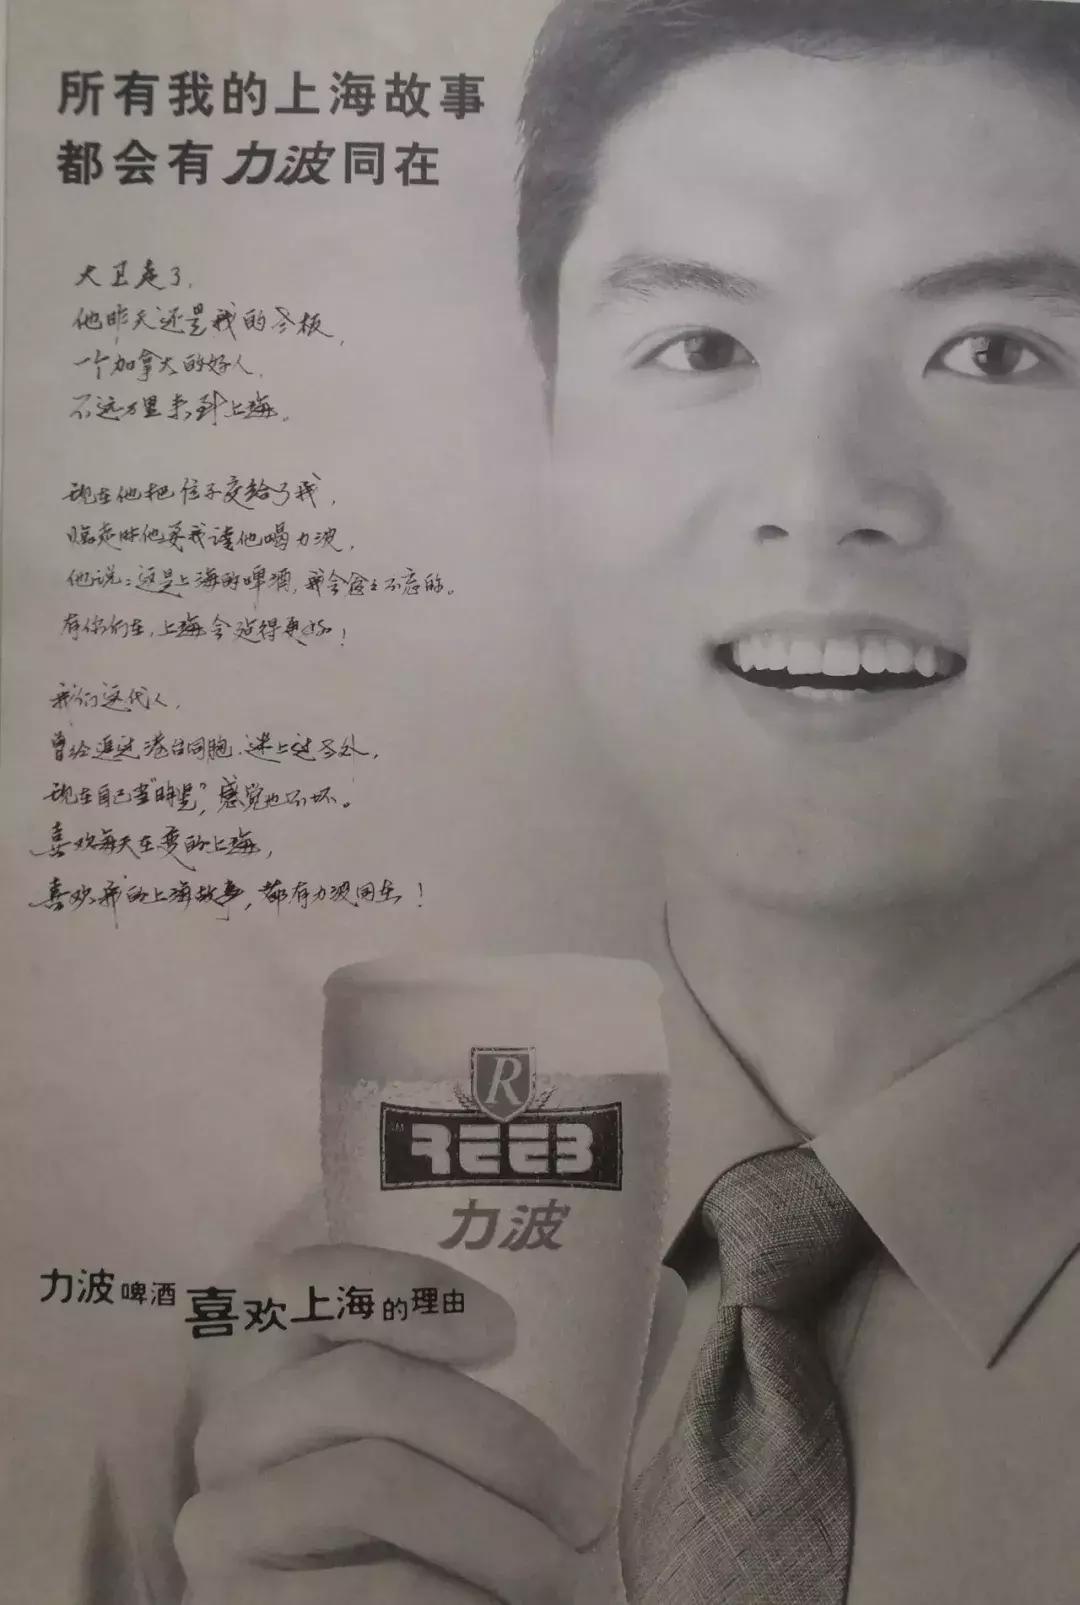 所有我的上海故事
都会有力波同在
大卫走了,
他昨天还是我的老板,
一个加拿大的好人,
不远万里来到上海。
现在他把位子交给了我,
临走时他要我请他喝力波,
他说:这是上海的啤酒,我会念念不忘的。
有你们在,上海会变得更好!
我们这代人,
曾经追过港台同胞,迷上过老外,
现在自己当"明星",感觉也不坏。
喜欢每天在变的上海,
喜欢我的上海故事,都有力波同在!
R
REEB
力波
力波啤酒 喜欢上海的理由